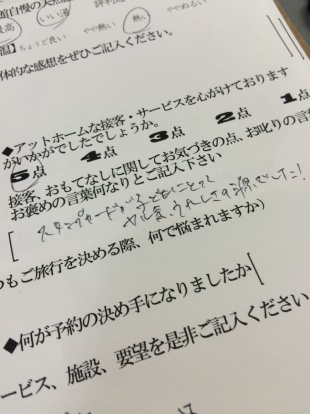 館自慢の天然温
最高 いい湯 評判
温】ちょうど良い やや熱い 熱い ややぬるい
体的な感想をぜひご記入ください。
◆アットホームな接客・サービスを心がけております
がいかがでしたでしょうか。
5点 4点 3点 2点 1点
接客、おもてなしに関してお気づきの点、お叱りの言葉
お褒めの言葉何なりとご記入下さい
スタンプカードが子どもにとって
でした!
つもご旅行を決める際、何で悩まれますか)
◆何が予約の決め手になりましたか
ービス、施設、要望を是非ご記入ください